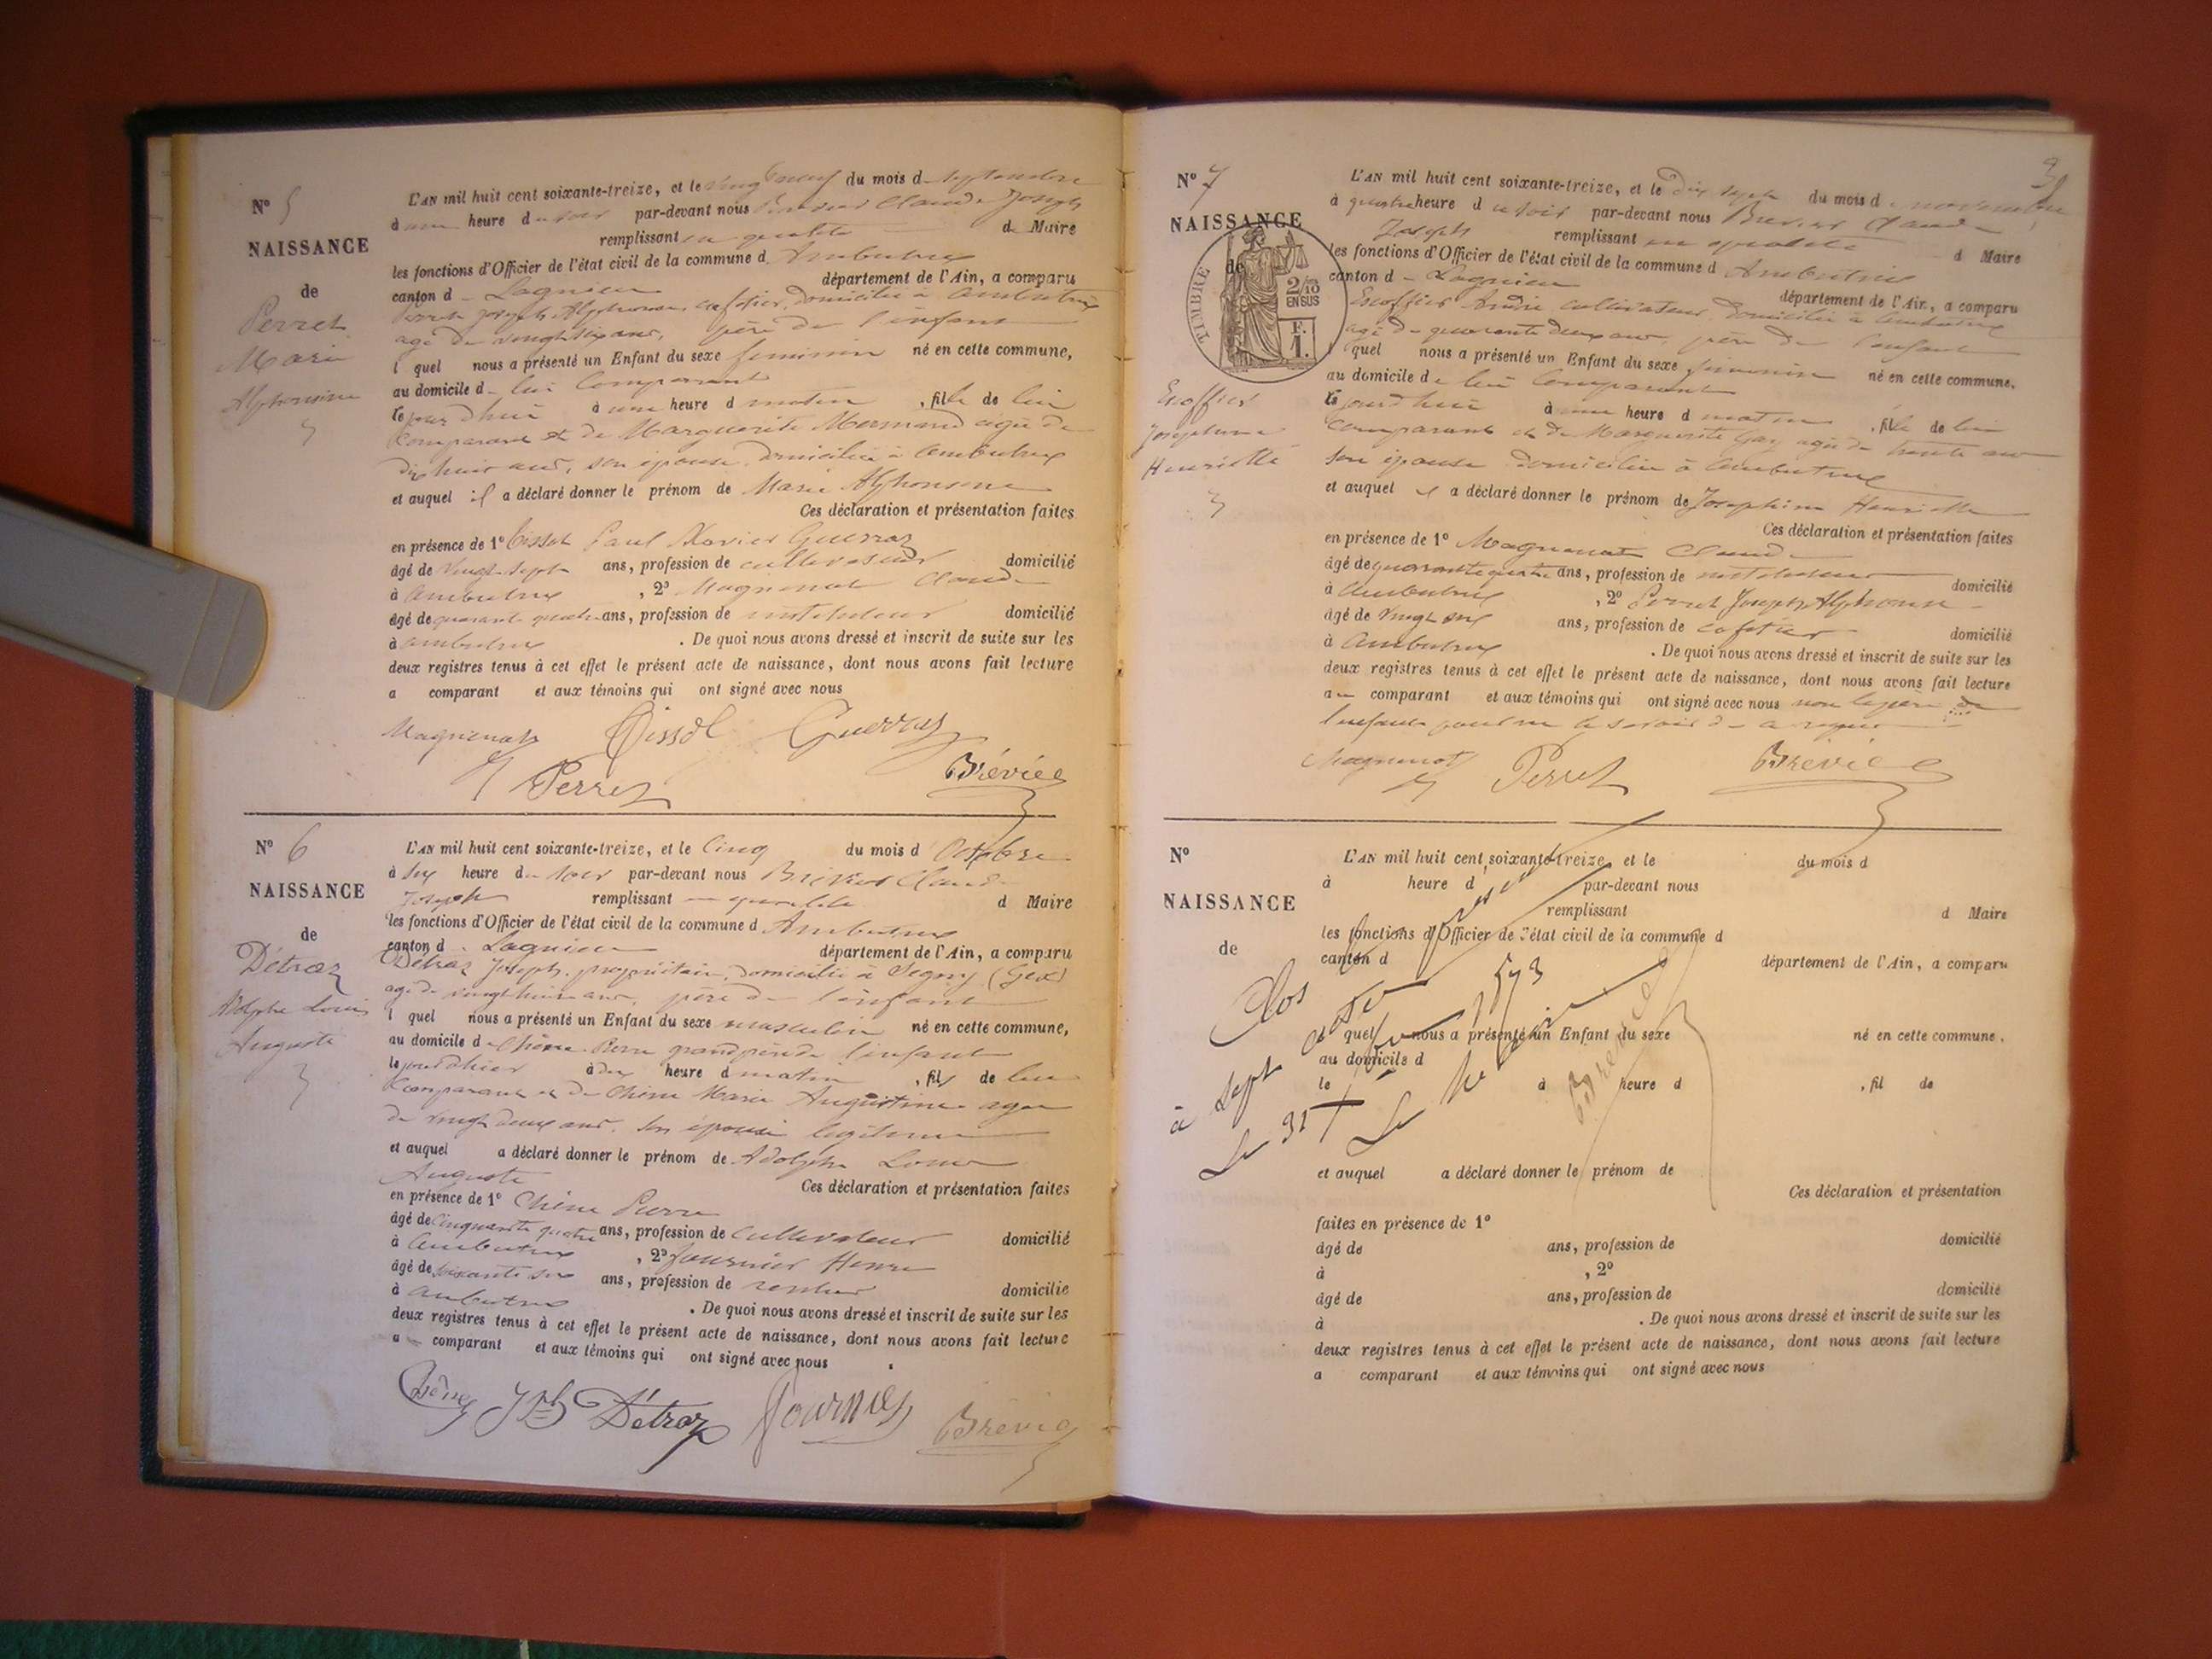 N° 5
NAISSANCE
de
Perret
Marie
Alphonsine
L'AN mil huit cent soixante-treize, et le vingt neuf du mois de septembre
à une heure du soir par-devant nous Brevier Claude Joseph
remplissant en qualité de Maire
les fonctions d'Officier de l'état civil de la commune d Ambutrix
canton de Lagnieu département de l'Ain, a comparu
Perret Joseph Alphonse, cafetier, domicilié à Ambutrix
agé de vingt six ans, père de l'enfant
l quel nous a présenté un Enfant du sexe feminin né en cette commune,
au domicile de lui Comparant
le jourd'hui à une heure d matin , fille de lui
Comparant et de Marguerite Mermand agée de
dix huit ans, son épouse, domiciliée à Ambutrix
et auquel il a déclaré donner le prénom de Marie Alphonsine
Ces déclaration et présentation faites
en présence de 1° Tissot Paul Xavier Guerraz
âgé de vingt sept ans, profession de cultivateur domicilié
à Ambutrix , 2° Magnenat Claude
âgé de quarante quatre ans, profession de instituteur domicilié
à Ambutrix . De quoi nous avons dressé et inscrit de suite sur les
deux registres tenus à cet effet le présent acte de naissance, dont nous avons fait lecture
a comparant et aux témoins qui ont signé avec nous
Magnenat Tissot Guerraz
Perret Brévier
N° 6
NAISSANCE
de
Détraz
Adolphe Louis
Auguste
L'AN mil huit cent soixante-treize, et le Cinq du mois d' Octobre
à six heure du soir par-devant nous Brevier Claude
Joseph remplissant en qualité d Maire
les fonctions d'Officier de l'état civil de la commune d Ambutrix
canton d Lagnieu département de l'Ain, a comparu
Détraz Joseph, propriétaire, domicilié à Segny (Gex)
agé de vingt huit ans, père de l'enfant
l quel nous a présenté un Enfant du sexe masculin né en cette commune,
au domicile de Chêne Pierre grand père de l'enfant
le jourd'hier à dix heure d matin , fils de lui
Comparant et de Chêne Marie Augustine agée
de vingt deux ans, son épouse légitime
et auquel a déclaré donner le prénom de Adolphe Louis
Auguste
Ces déclaration et présentation faites
en présence de 1° Chêne Pierre
âgé de Cinquante quatre ans, profession de Cultivateur domicilié
à Ambutrix , 2° Fournier Henri
âgé de soixante six ans, profession de rentier domicilié
à Ambutrix . De quoi nous avons dressé et inscrit de suite sur les
deux registres tenus à cet effet le présent acte de naissance, dont nous avons fait lecture
au comparant et aux témoins qui ont signé avec nous
Chêne Jph Détraz Fournier Brévier
N° 7
NAISSANCE
de
TIMBRE
2/10
EN SUS
F.
1.
Escoffier
Josephine
Henriette
L'AN mil huit cent soixante-treize, et le Dix sept du mois de novembre
à quatre heure du soir par-devant nous Brevier Claude
Joseph remplissant en qualité d Maire
les fonctions d'Officier de l'état civil de la commune d Ambutrix
canton d Lagnieu département de l'Ain, a comparu
Escoffier André cultivateur, domicilié à Ambutrix
agé de quarante deux ans, père de l'enfant
l quel nous a présenté un Enfant du sexe feminin né en cette commune.
au domicile de lui Comparant
le jourd'hui à une heure d matin , fille de lui
Comparant et de Marguerite Gay agée de trente ans
son épouse domiciliée à Ambutrix
et auquel il a déclaré donner le prénom de Josephine Henriette
Ces déclaration et présentation faites
en présence de 1° Magnenat Claude
âgé de quarante quatre ans, profession de instituteur domicilié
à Ambutrix , 2° Perret Joseph Alphonse
âgé de vingt six ans, profession de cafetier domicilié
à Ambutrix . De quoi nous avons dressé et inscrit de suite sur les
deux registres tenus à cet effet le présent acte de naissance, dont nous avons fait lecture
au comparant et aux témoins qui ont signé avec nous non le père de
l'enfant pour ne le savoir de ce requis
Magnenat Perret Brévier
N°
NAISSANCE
de
L'AN mil huit cent soixante-treize, et le du mois d
à heure d par-devant nous
remplissant d Maire
les fonctions d'Officier de l'état civil de la commune d
canton d département de l'Ain, a comparu
l quel nous a présenté un Enfant du sexe né en cette commune.
au domicile d
le à heure d , fil de
et auquel a déclaré donner le prénom de
Ces déclaration et présentation
faites en présence de 1°
âgé de ans, profession de domicilié
à , 2°
âgé de ans, profession de domicilié
à . De quoi nous avons dressé et inscrit de suite sur les
deux registres tenus à cet effet le présent acte de naissance, dont nous avons fait lecture
a comparant et aux témoins qui ont signé avec nous
Clos
à sept
Le 31 1873
Le Maire
Brévier